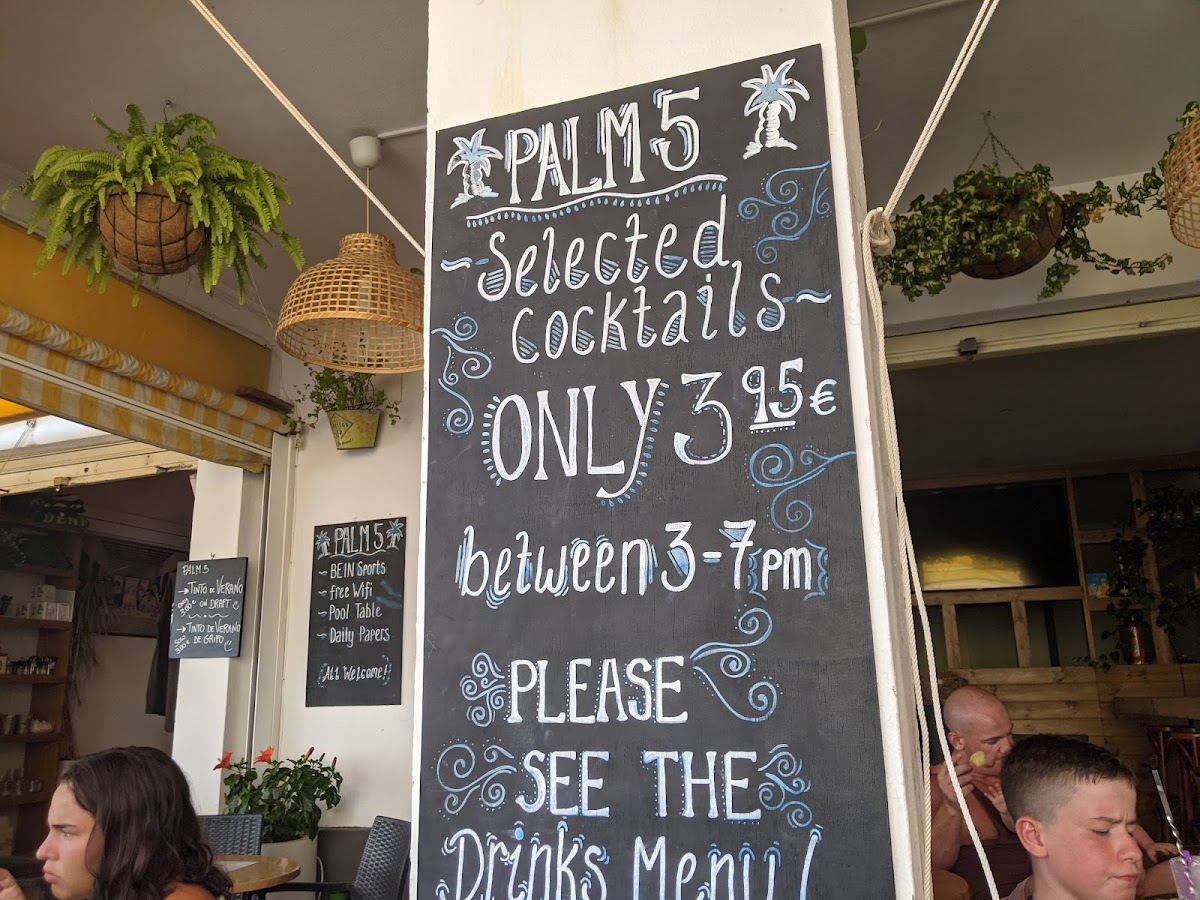 PALM 5
Selected
cocktails
ONLY 3 95 €
between 3-7 pm
PLEASE
SEE THE
Drinks Menu!
PALM 5
~ BEIN Sports
~ free Wifi
~ Pool Table
~ Daily Papers
All Welcome!
PALM 5
→ TINTO DE VERANO
ON DRAFT
3,00€
→ TINTO DE VERANO
DE GRIFO
3,00€